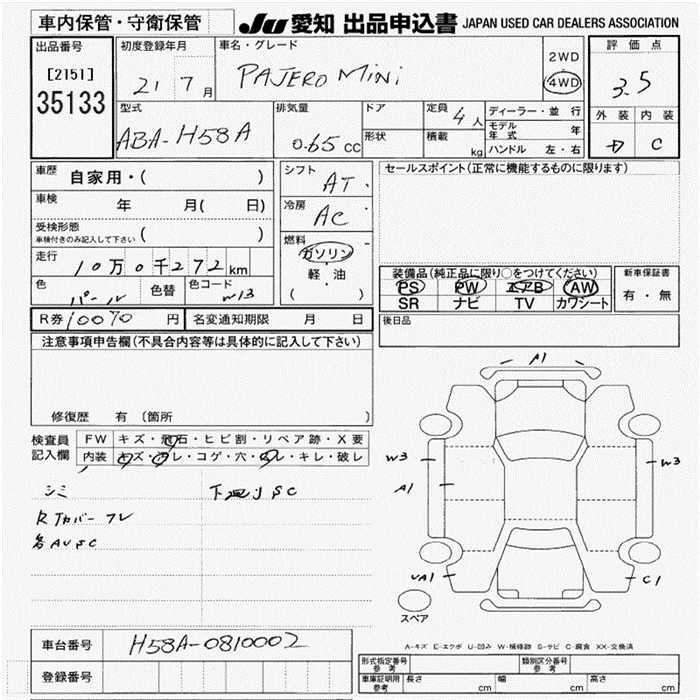 車内保管・守衛保管
JU 愛知 出品申込書 JAPAN USED CAR DEALERS ASSOCIATION
出品番号
[2151]
35133
初度登録年月
21 7 月
車名・グレード
PAJERO MINI
2WD
4WD
評価点
3.5
外装 内装
C
型式
ABA-H58A
排気量
0.65 CC
ドア
形状
定員 4 人
積載 kg
ディーラー・並行
モデル年式 年
ハンドル 左・右
車歴 自家用・( )
車検 年 月( 日)
受検形態
車検付きのみ記入して下さい ( )
走行 10万0千272 km
色 パール 色替 色コード W13
シフト AT
冷房 AC
燃料
ガソリン
軽・油
( )
セールスポイント(正常に機能するものに限ります)
装備品(純正品に限り○をつけてください)
PS PW エアB AW
SR ナビ TV カワシート
新車保証書
有・無
R券 10070 円 名変通知期限 月 日
後日品
注意事項申告欄(不具合内容等は具体的に記入して下さい)
修復歴 有 〔箇所 〕
検査員記入欄
FW キズ・飛石・ヒビ割・リペア跡・X要
内装 キズ・ヨゴレ・コゲ・穴・・キレ・破レ
シミ 下廻りSC
Rカバー フレ
各AVSC
A1
W3 W3
A1
UA1 C1
スペア
A-キズ E-エクボ U-凹み W-補修跡 S-サビ C-腐食 XX-交換済
車台番号 H58A-0810002
登録番号
形式指定番号 参考 類別区分番号 参考
車庫証明用 参考 長さ cm 幅 cm 高さ cm